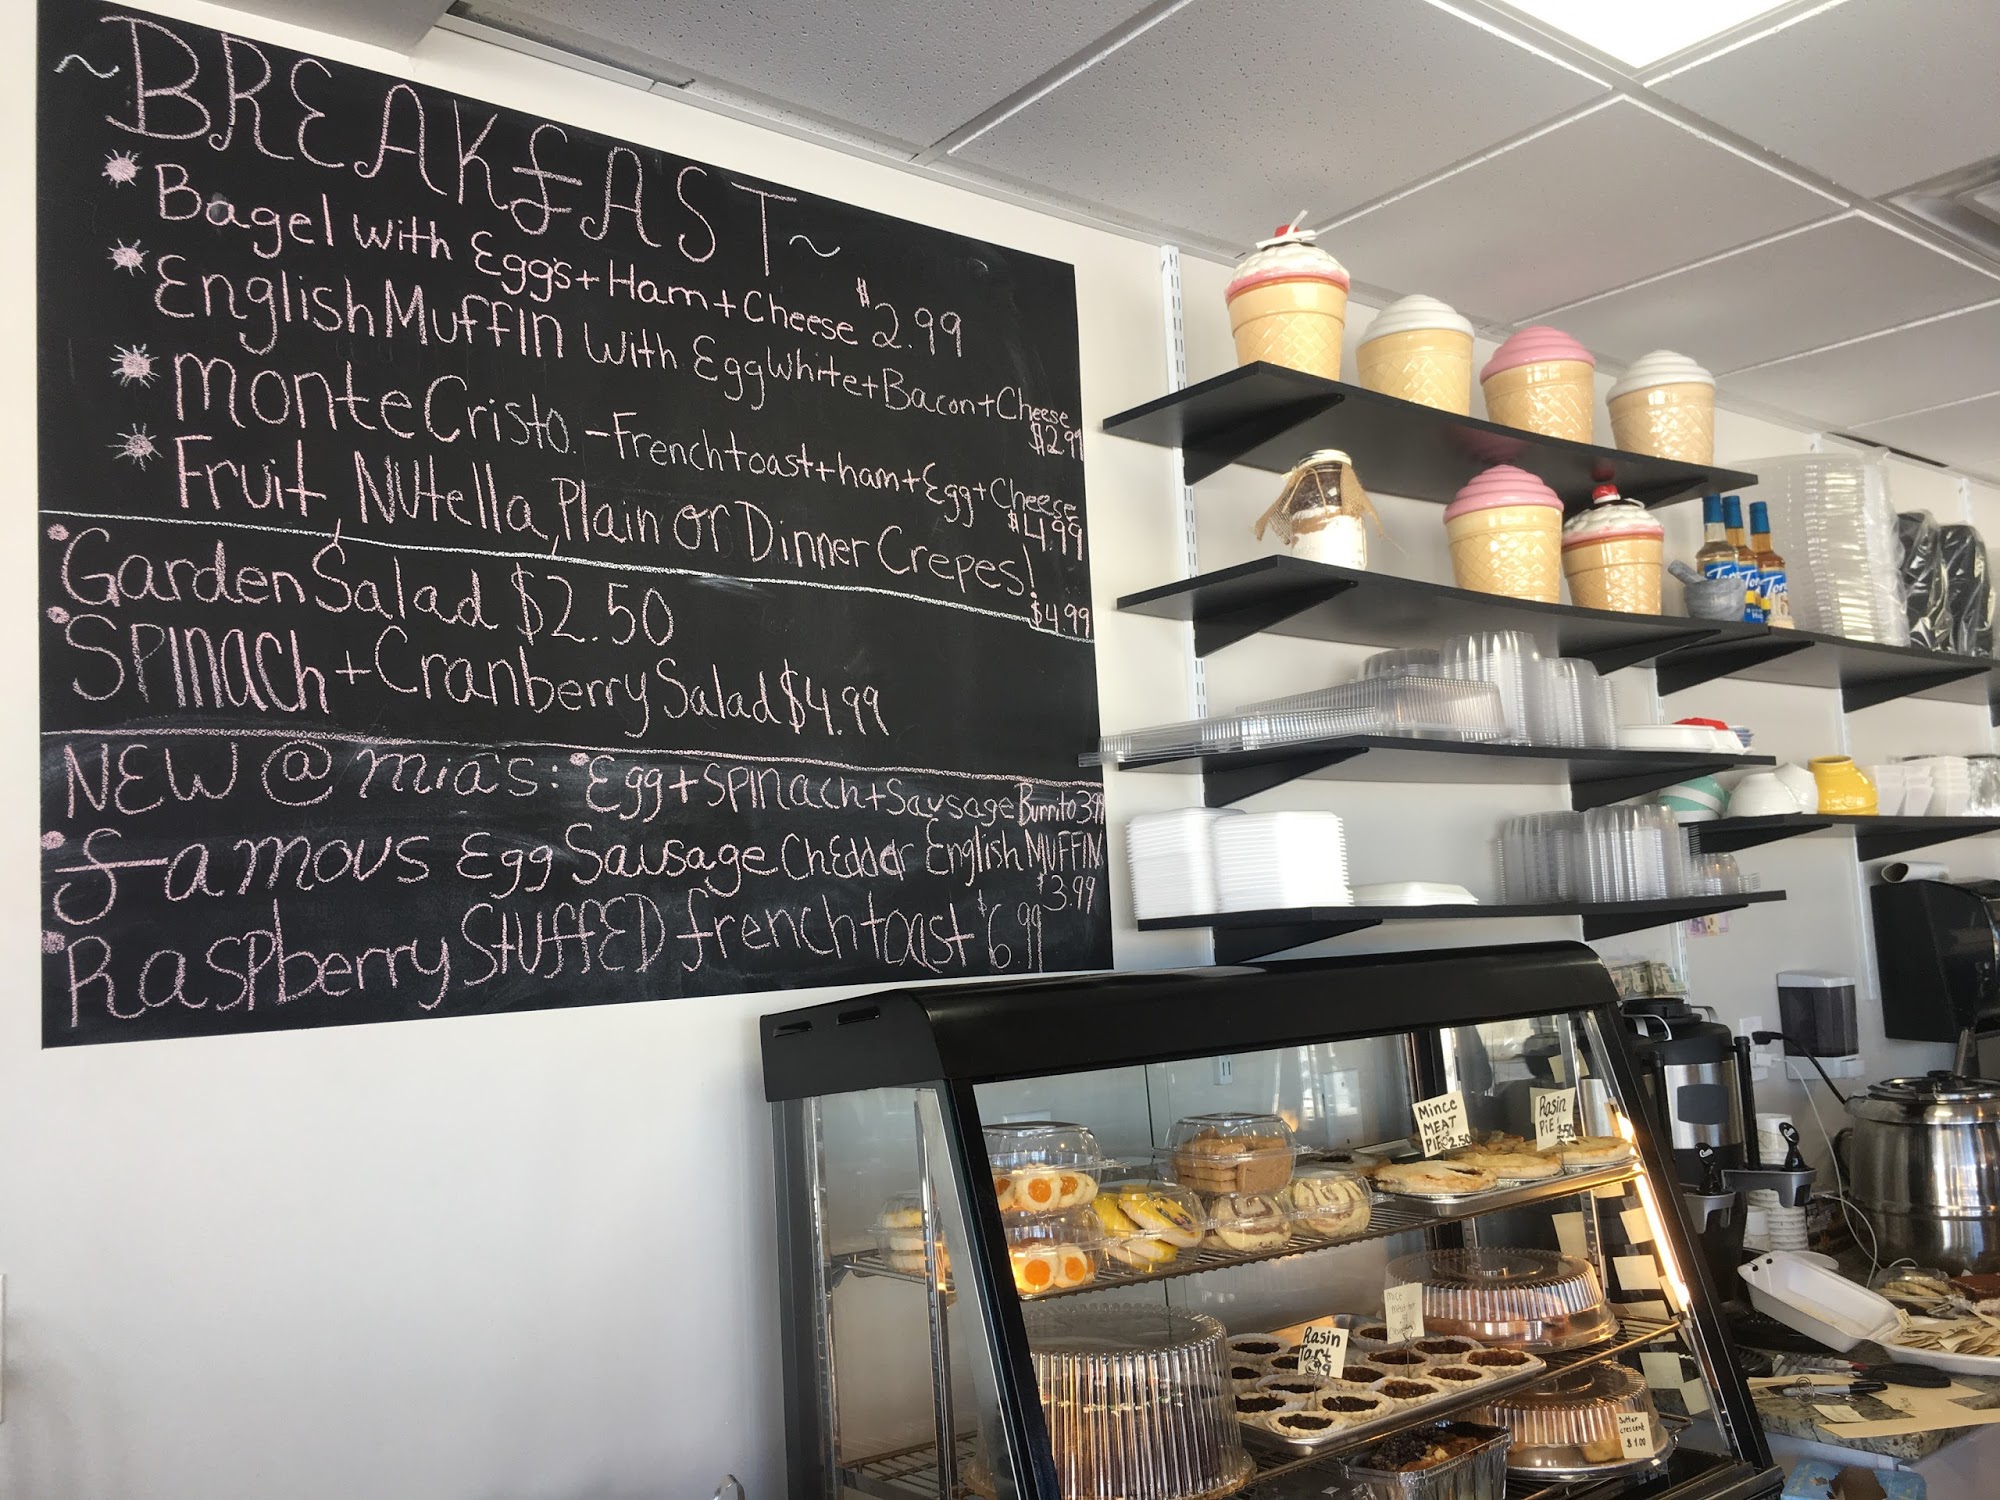 ~BREAKfAST~
Bagel with Eggs+Ham+Cheese $2.99
English MuffIN with Egg White+Bacon+Cheese
$2.99
Monte Cristo. -French toast+ham+Egg+Cheese
$4.99
Fruit, Nutella, Plain or Dinner Crepes!
$4.99
Garden Salad $2.50
Spinach+Cranberry Salad $4.99
NEW @ mia's: Egg+Spinach+Sausage Burrito 3.99
famous Egg Sausage Cheddar English MUFFIN
$3.99
Raspberry STUffED french toast $6.99
Torani
Mince
MEAT
PIE 2.50
Rasin
PIE
Rasin
Tart
.99
butter
crescent
$1.00